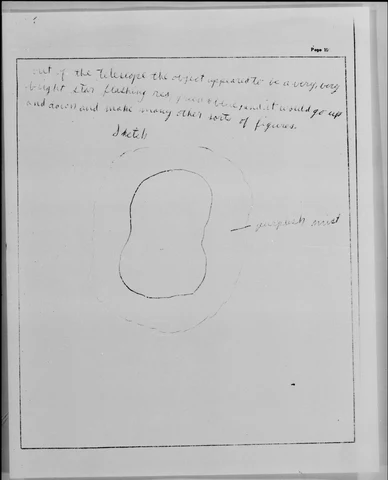 Page
out of the telescope the object appeared to be a very, very
bright star flashing red, green & blue, and it would go up
and down and make many other sorts of figures.
Sketch
purplish mist